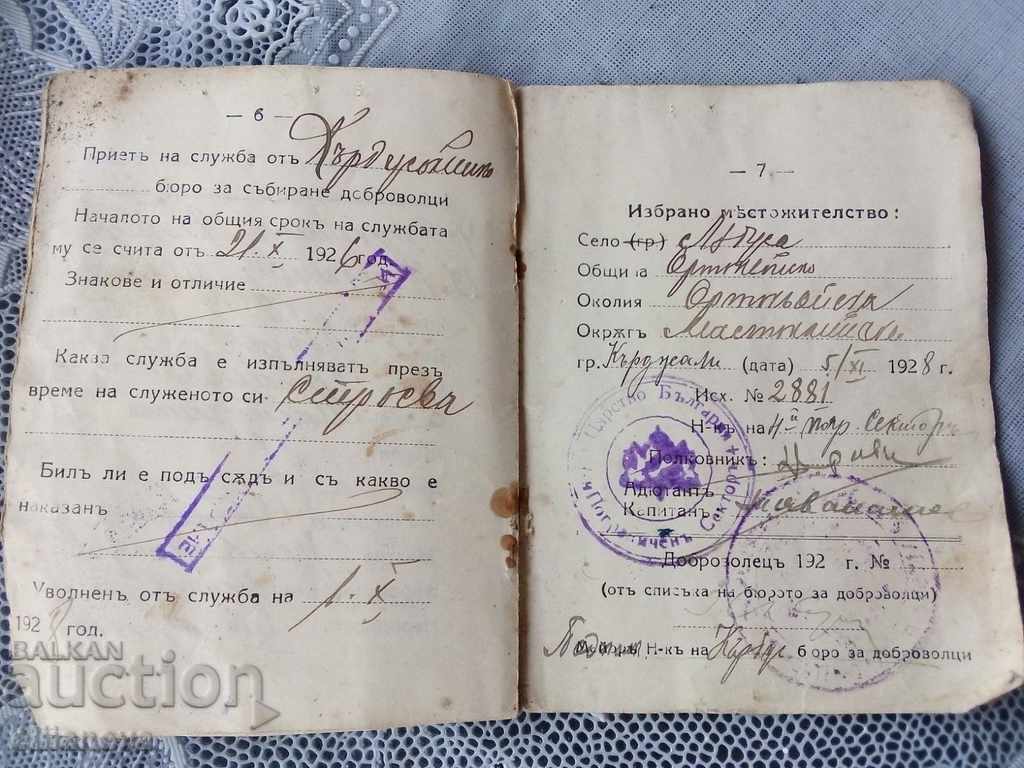 — 6 —
Приетъ на служба отъ
бюро за събиране доброволци
Началото на общия срокъ на службата
му се счита отъ 21. XI 1926 год.
Знакове и отличие
Каква служба е изпълняватъ презъ
време на служеното си строева
Билъ ли е подъ сѫдъ и съ какво е
наказанъ
Уволненъ отъ служба на 1. X
1928 год.
— 7 —
Избрано мѣстожителство:
Село (гр)
Община
Околия Ортакьойска
Окрѫгъ
гр. Кърджали (дата) 5/XI 1928 г.
Исх. № 2881
Н-къ на 4й погр. Секторъ
Полковникъ:
Адютантъ
Капитанъ
Царство България
Пограниченъ Секторъ
Доброволецъ 192 г. №
(отъ списъка на бюрото за доброволци)
Н-къ на Кърдж. бюро за доброволци
BALKAN
auction